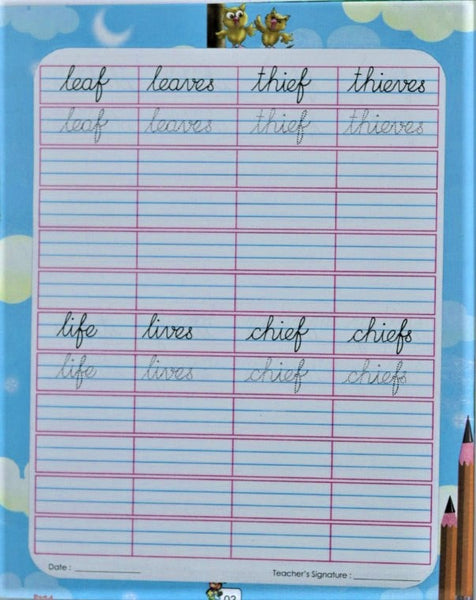 leaf leaves thief thieves
leaf leaves thief thieves
life lives chief chiefs
life lives chief chiefs
Date : ____________ Teacher's Signature : ____________